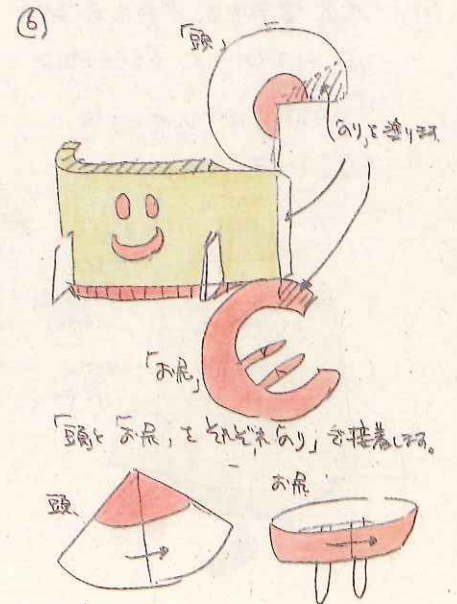 ⑥
「頭」
「のり」を塗ります
「お尻」
「頭」と「お尻」をそれぞれ「のり」で接着します。
頭
お尻